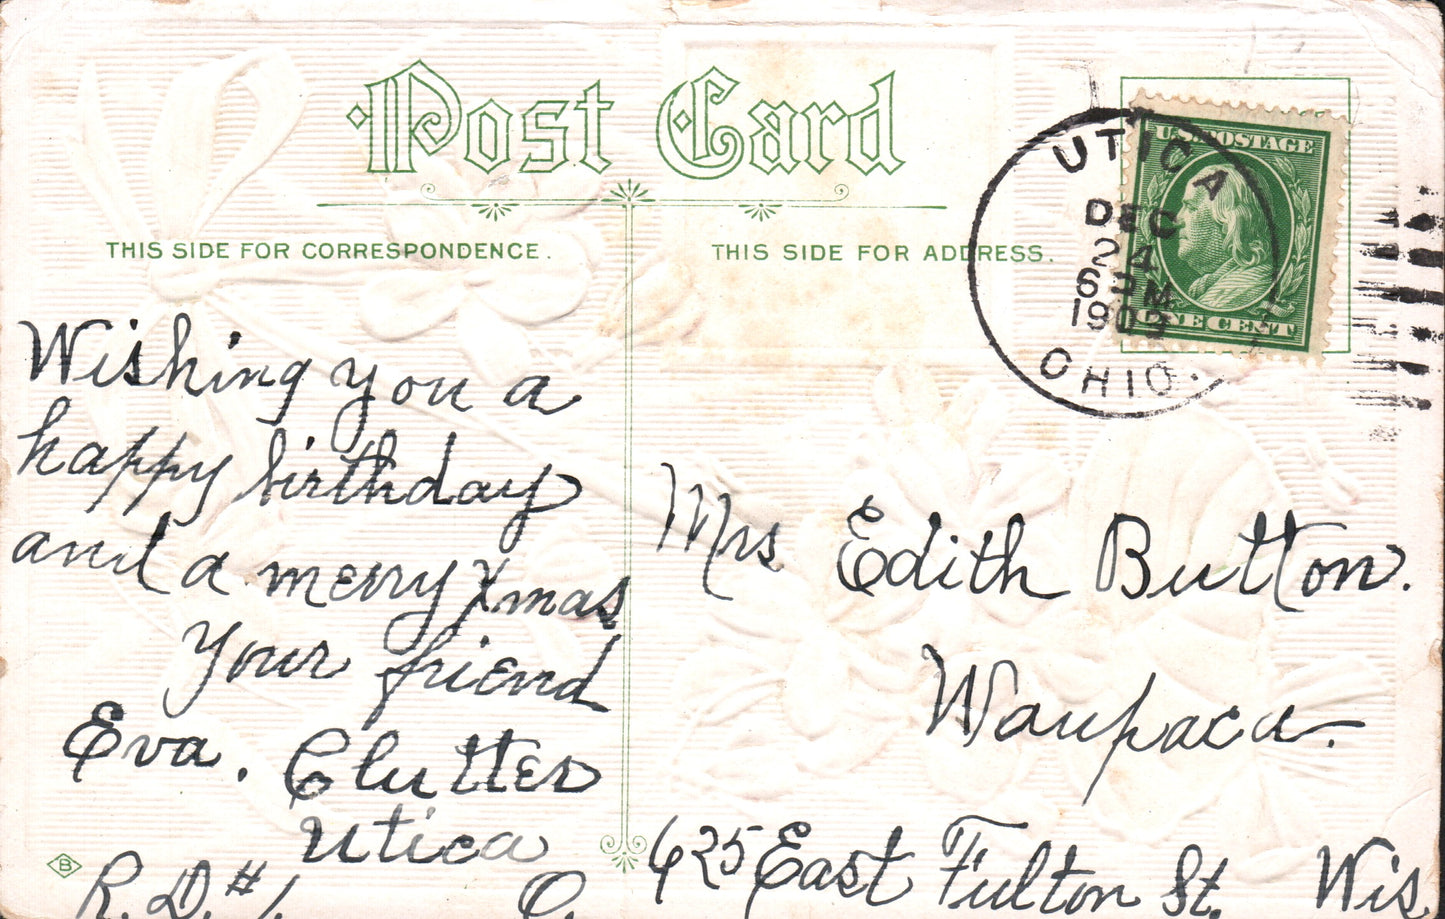 Post Card
THIS SIDE FOR CORRESPONDENCE.
THIS SIDE FOR ADDRESS.
UTICA
DEC
24
6 PM
1909
OHIO.
U.S. POSTAGE
ONE CENT
Wishing you a
happy birthday
and a merry Xmas
Your friend
Eva. Clutter
Utica
R.D. #1. O.
B
Mrs Edith Button.
Waupaca.
625 East Fulton St. Wis.